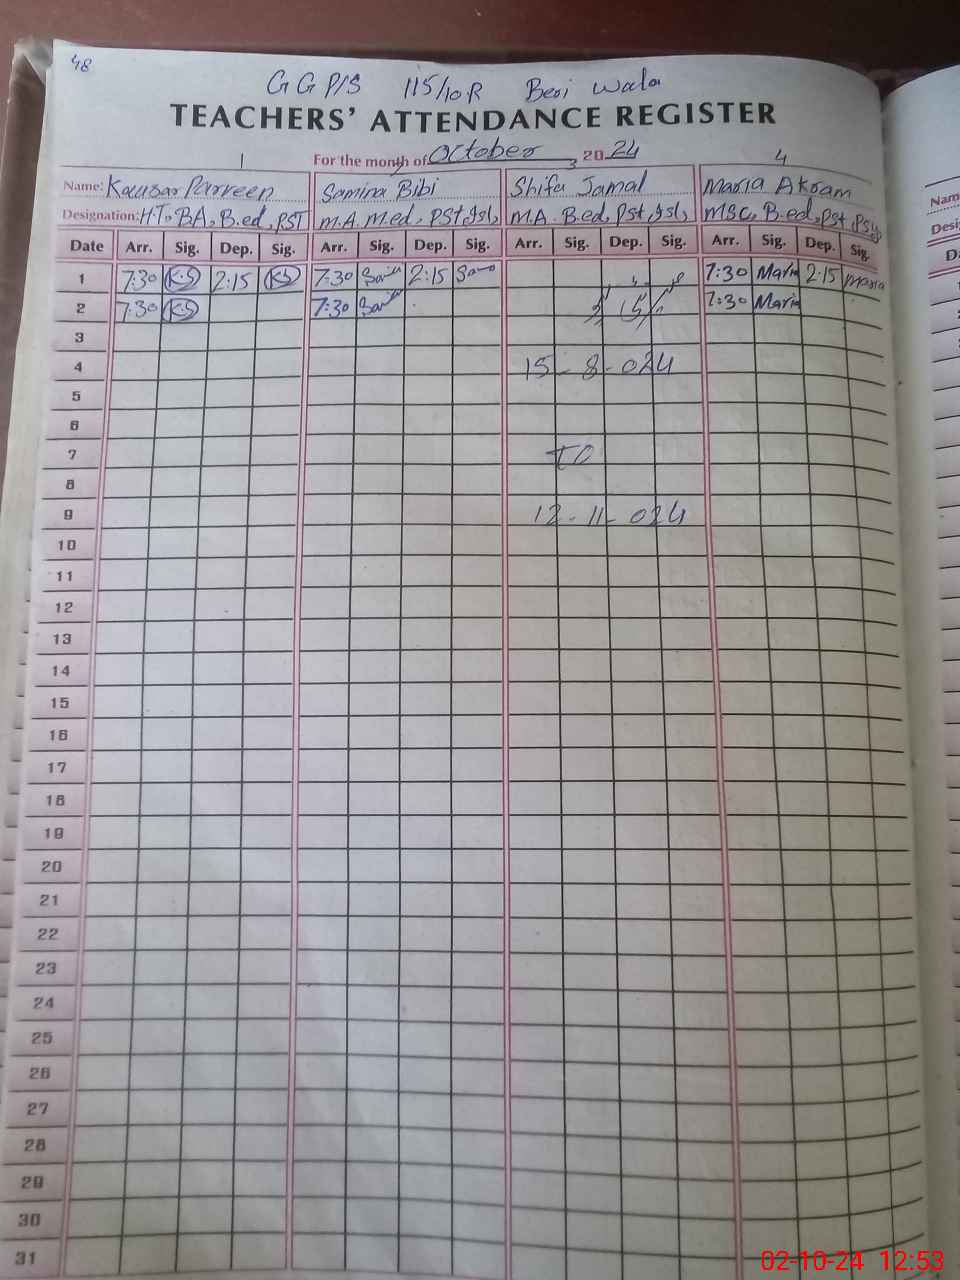 48
GGP/S 115/10R Beri Wala
TEACHERS' ATTENDANCE REGISTER
1 For the month of October 2024 4
Name: Kausar Parveen Samina Bibi Shifa Jamal Maria Akram
Designation: H.T, BA, B.ed, PST M.A. M.ed. PSt, Isl, M.A. B.ed, Pst, Isl, MSC, B.ed, Pst
Date Arr. Sig. Dep. Sig. Arr. Sig. Dep. Sig. Arr. Sig. Dep. Sig. Arr. Sig. Dep. Sig.
1 7:30 K.S 2:15 K.S 7:30 2:15 7:30 Maria 2:15 Maria
2 7:30 K.S 7:30 7:30 Maria
3
4 15-8-024
5
6
7 TO
8
9 12-11-024
10
11
12
13
14
15
16
17
18
19
20
21
22
23
24
25
26
27
28
29
30
31
Nam
Desi
D
02-10-24 12:53